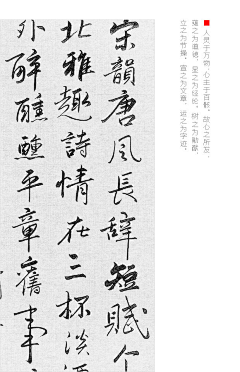 人灵于万物，心主于百骸。故心之所发，
蕴之为道德，显之为经纶，树之为勋猷，
立之为节操，宣之为文章，运之为字迹。
宋韻唐風長辭短賦个
北雅趣詩情在三杯淡
外醉醺醺平章舊事